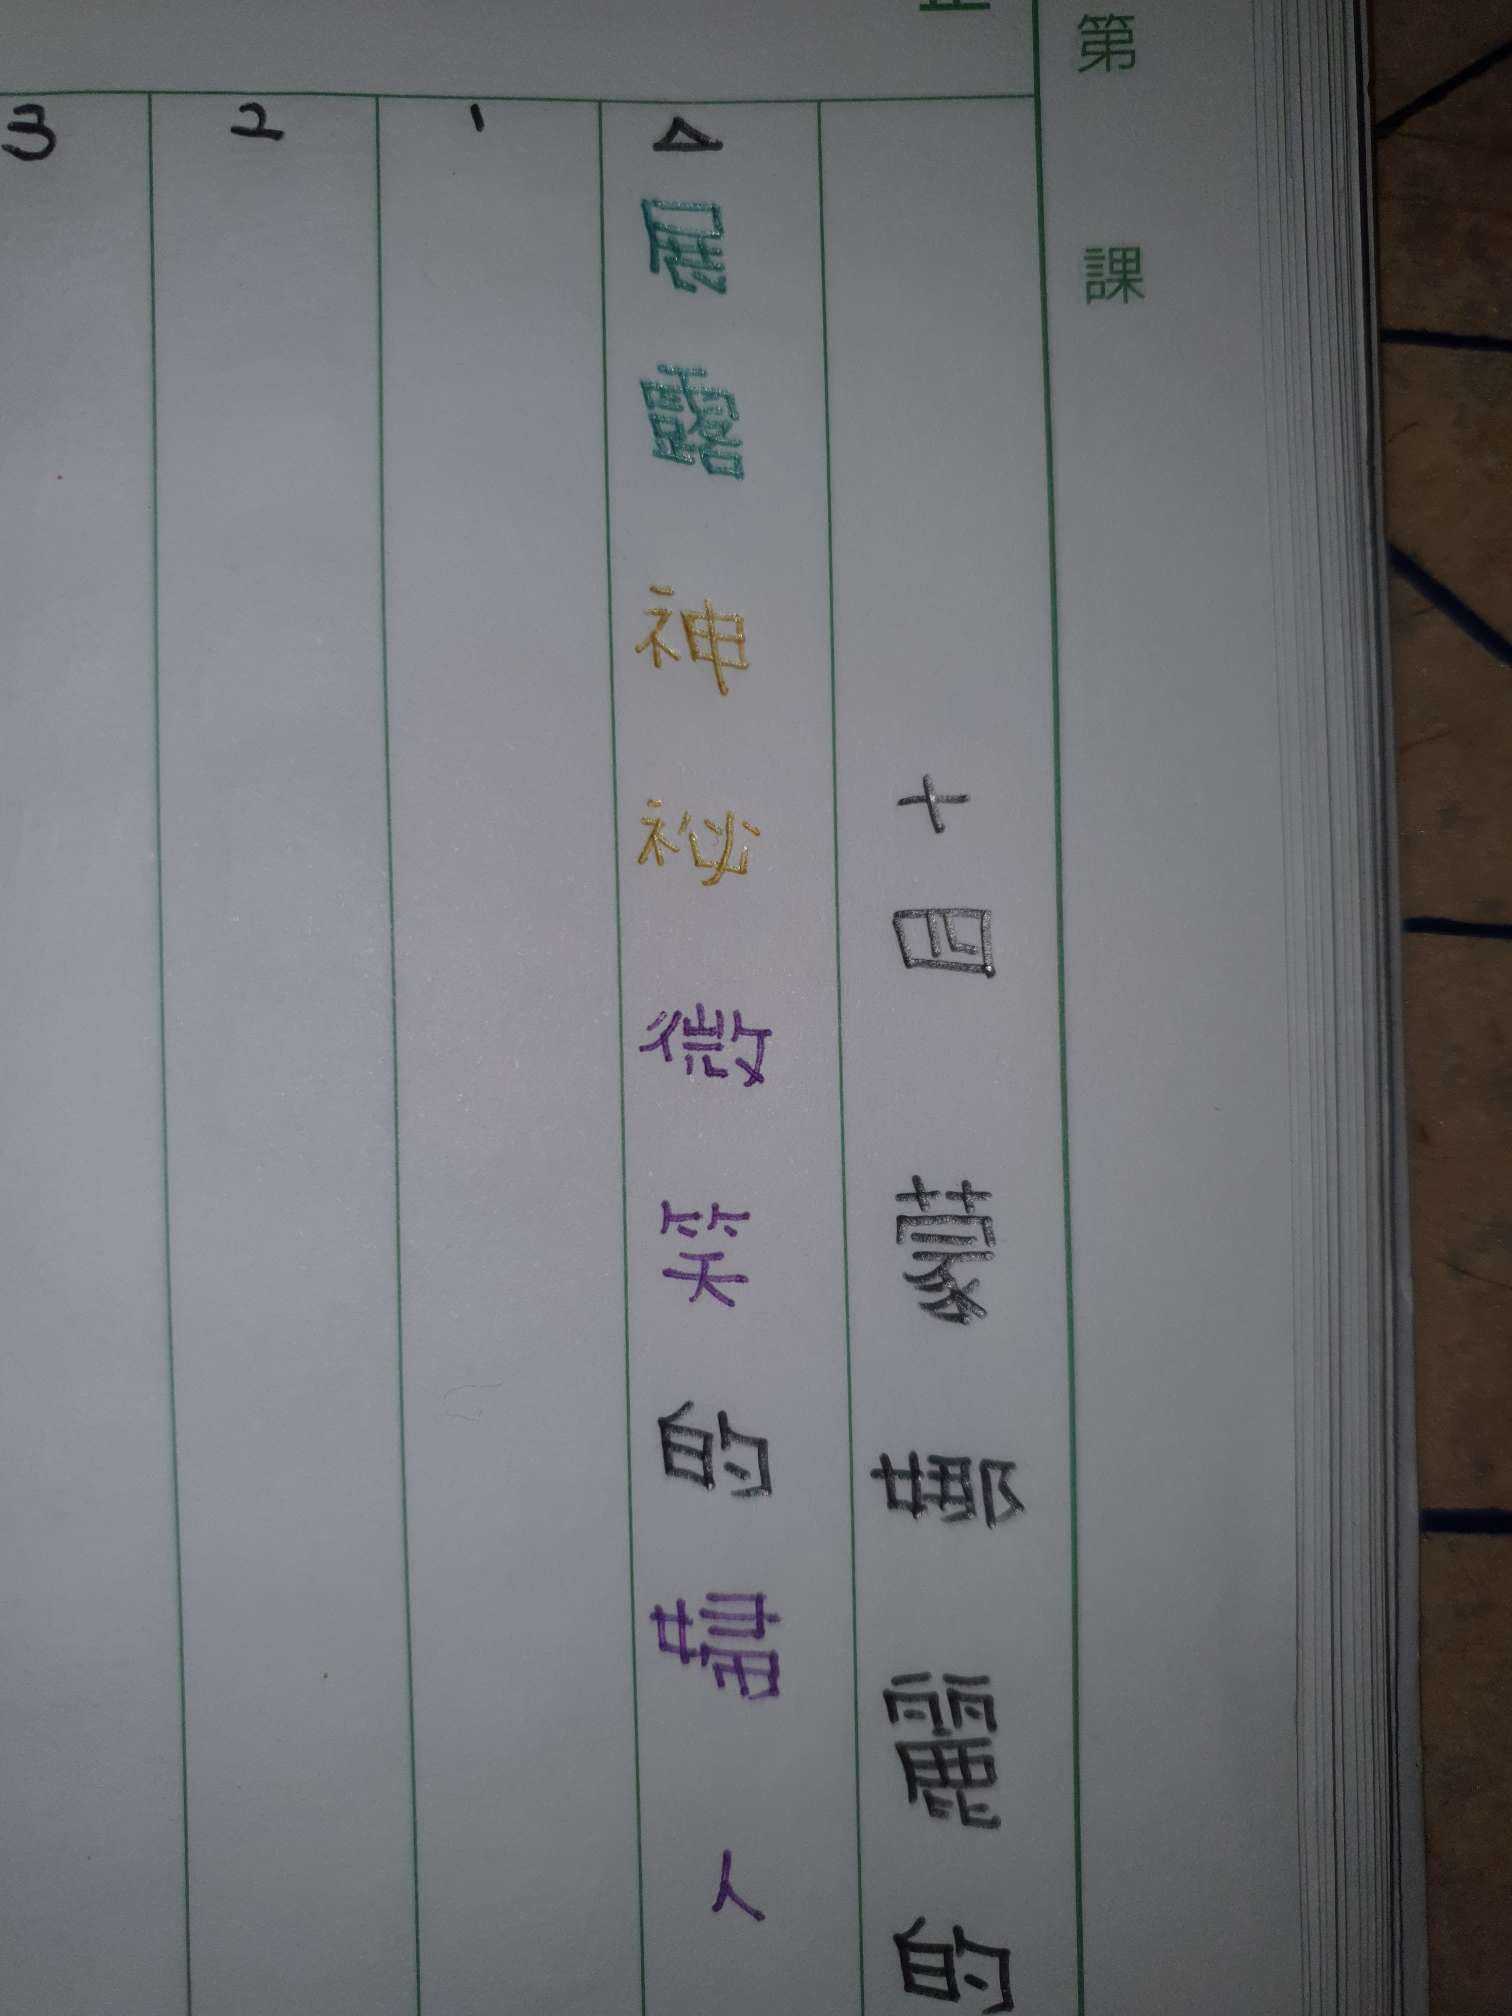 第 課
十四 蒙娜麗的
△展露神祕微笑的婦人
1
2
3